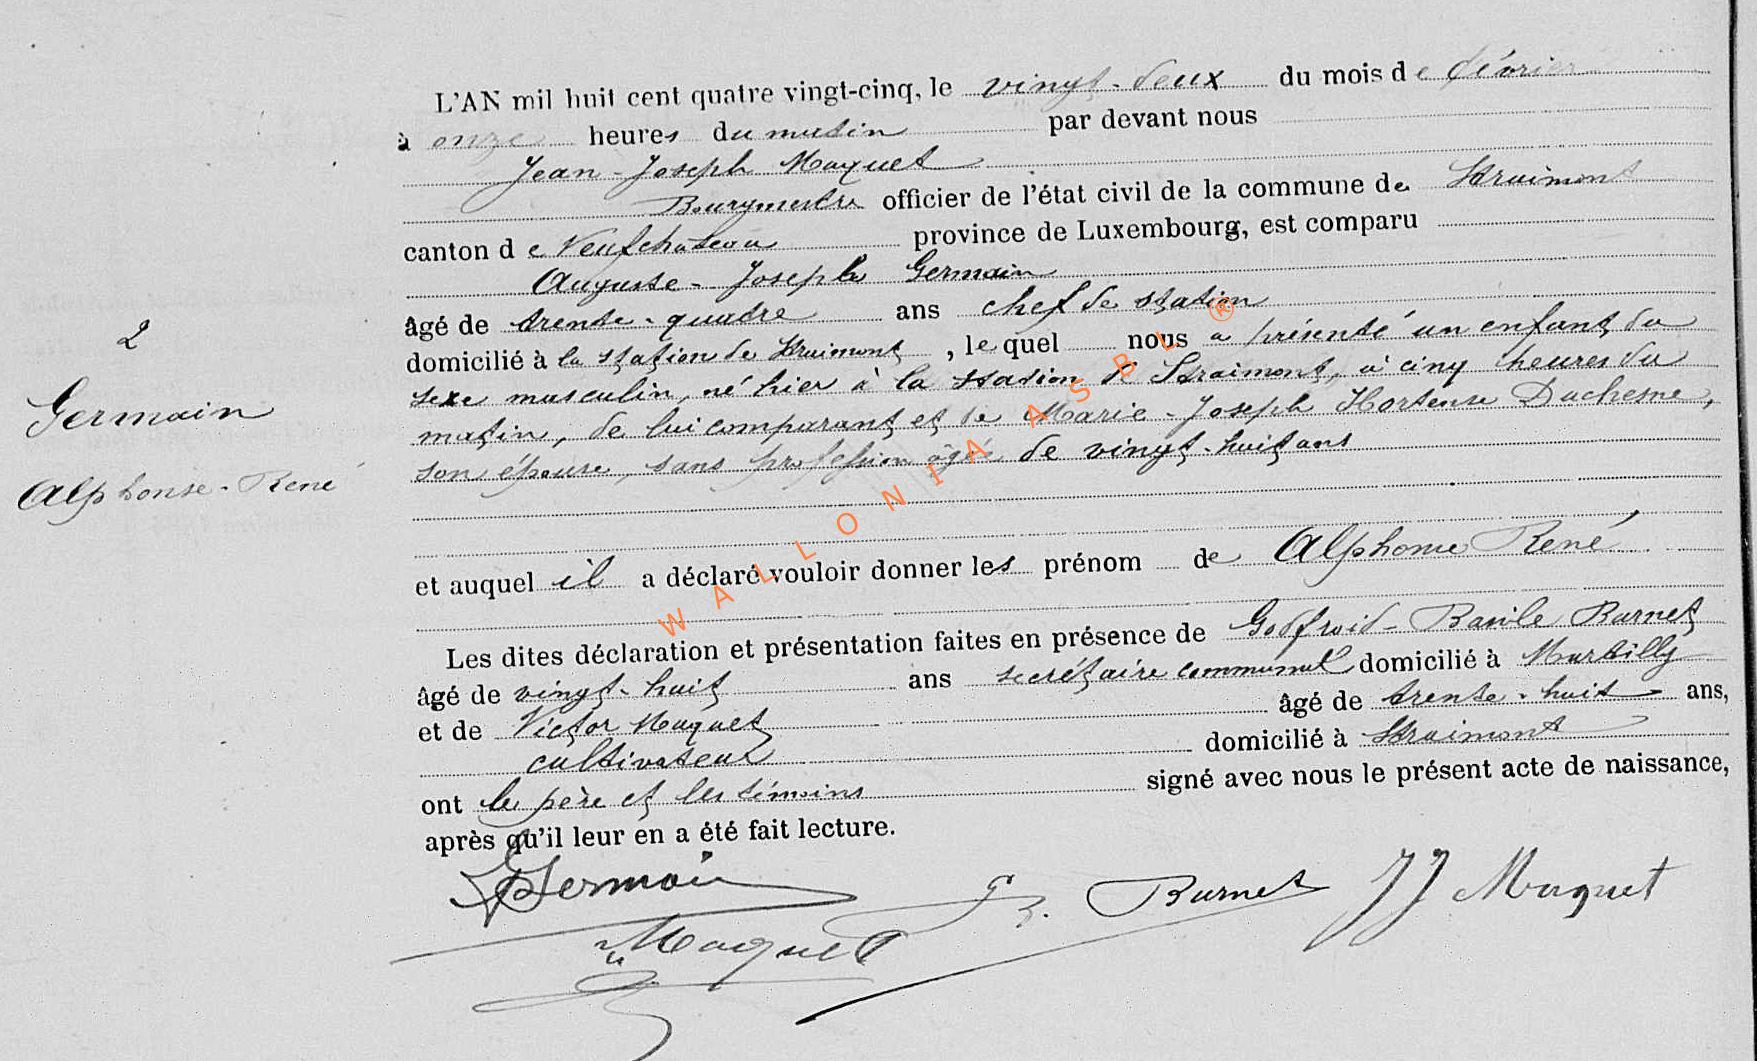 L'AN mil huit cent quatre vingt-cinq, le vingt-deux du mois de février
à onze heures du matin par devant nous
Jean-Joseph Maquet
Bourgmestre officier de l'état civil de la commune de Straimont
canton de Neufchâteau province de Luxembourg, est comparu
Auguste-Joseph Germain
âgé de trente-quatre ans chef de station
domicilié à la station de Straimont, lequel nous a présenté un enfant du
sexe masculin, né hier à la station de Straimont, à cinq heures du
matin, de lui comparant et de Marie-Joseph Hortense Duchesne,
son épouse, sans profession âgée de vingt-huit ans
2
Germain
Alphonse-René
et auquel il a déclaré vouloir donner les prénom de Alphonse René
Les dites déclaration et présentation faites en présence de Godfroid-Basile Burnet
âgé de vingt-huit ans secrétaire communal domicilié à Martilly
et de Victor Maquet âgé de trente-huit ans,
cultivateur domicilié à Straimont
ont le père et les témoins signé avec nous le présent acte de naissance,
après qu'il leur en a été fait lecture.
Germain
G B. Burnet
JJ Maquet
V Maquet
WALLONIA ASBL ®